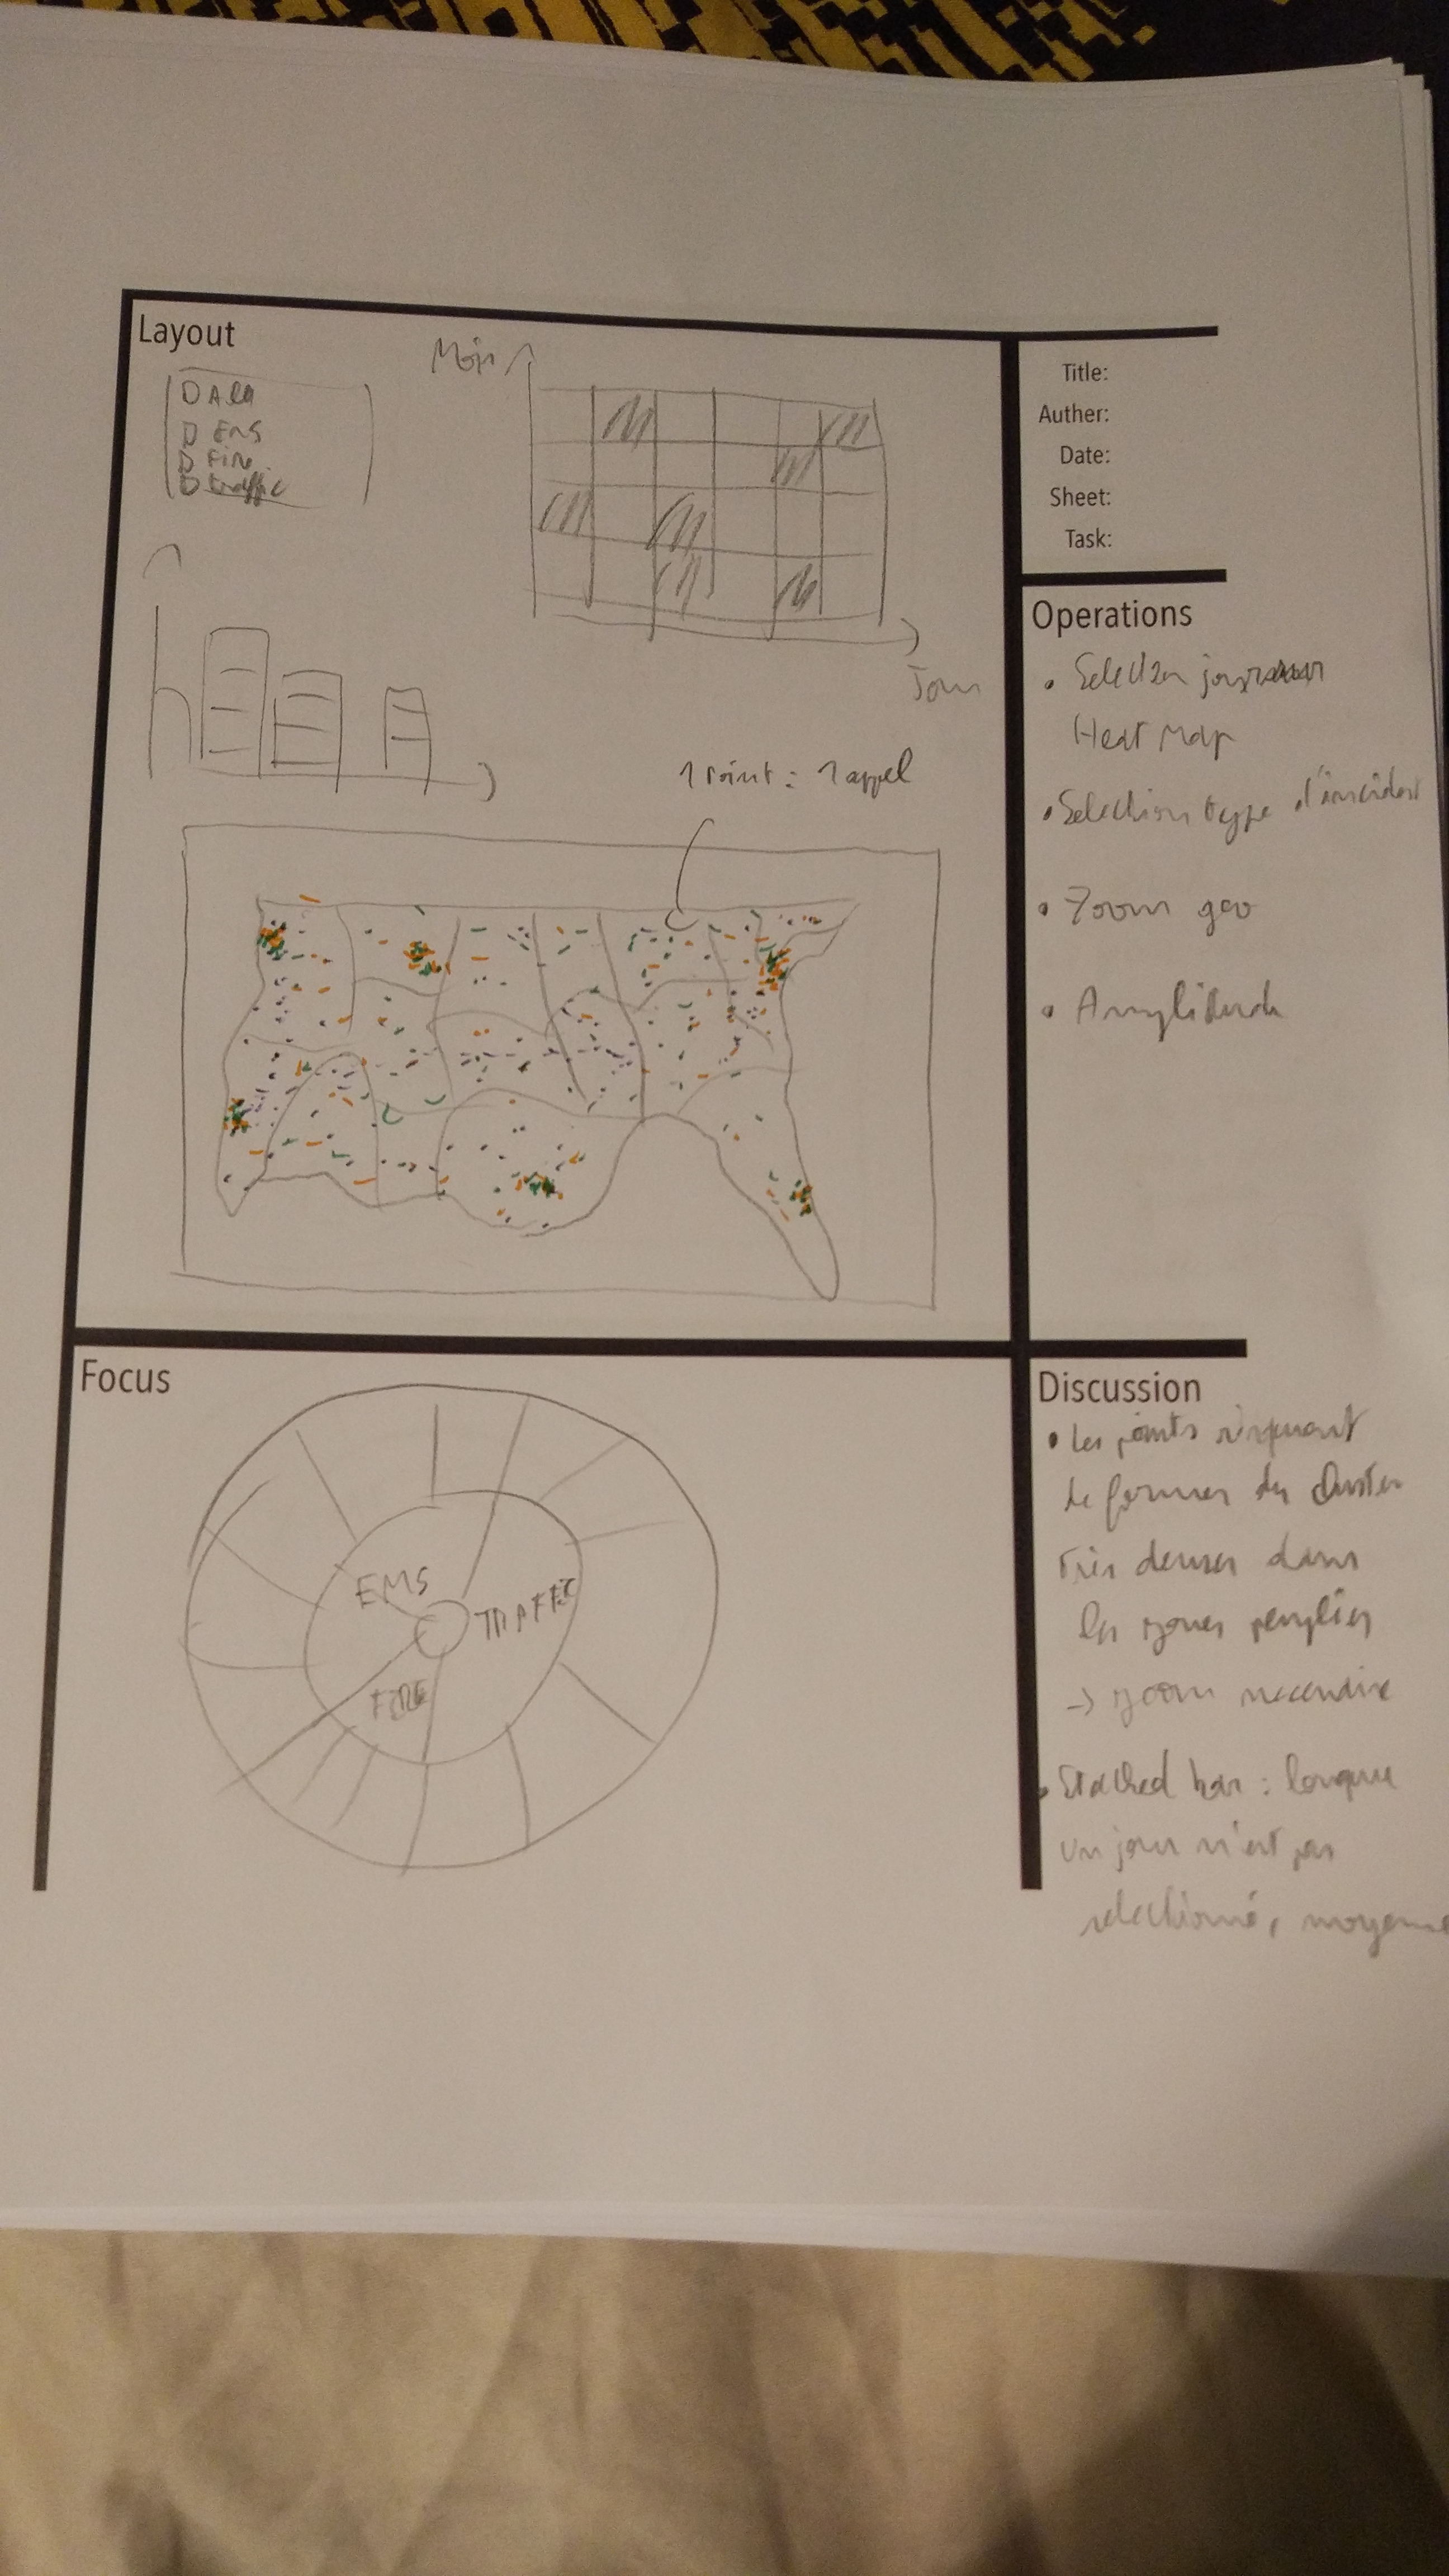 Layout
All
EMS
Fire
traffic
Mois
Jour
1 Point : 1 appel
Title:
Auther:
Date:
Sheet:
Task:
Operations
• Selection jour
Heat Map
• Selection type d'incident
• Zoom geo
• Amplitude
Focus
EMS
TRAFFIC
FIRE
Discussion
• Les points risquent
de former des cluster
très denses dans
les zones peuplées
→ zoom necessaire
• Stacked bar : lorsque
un jour n'est pas
selectionné, moyenne